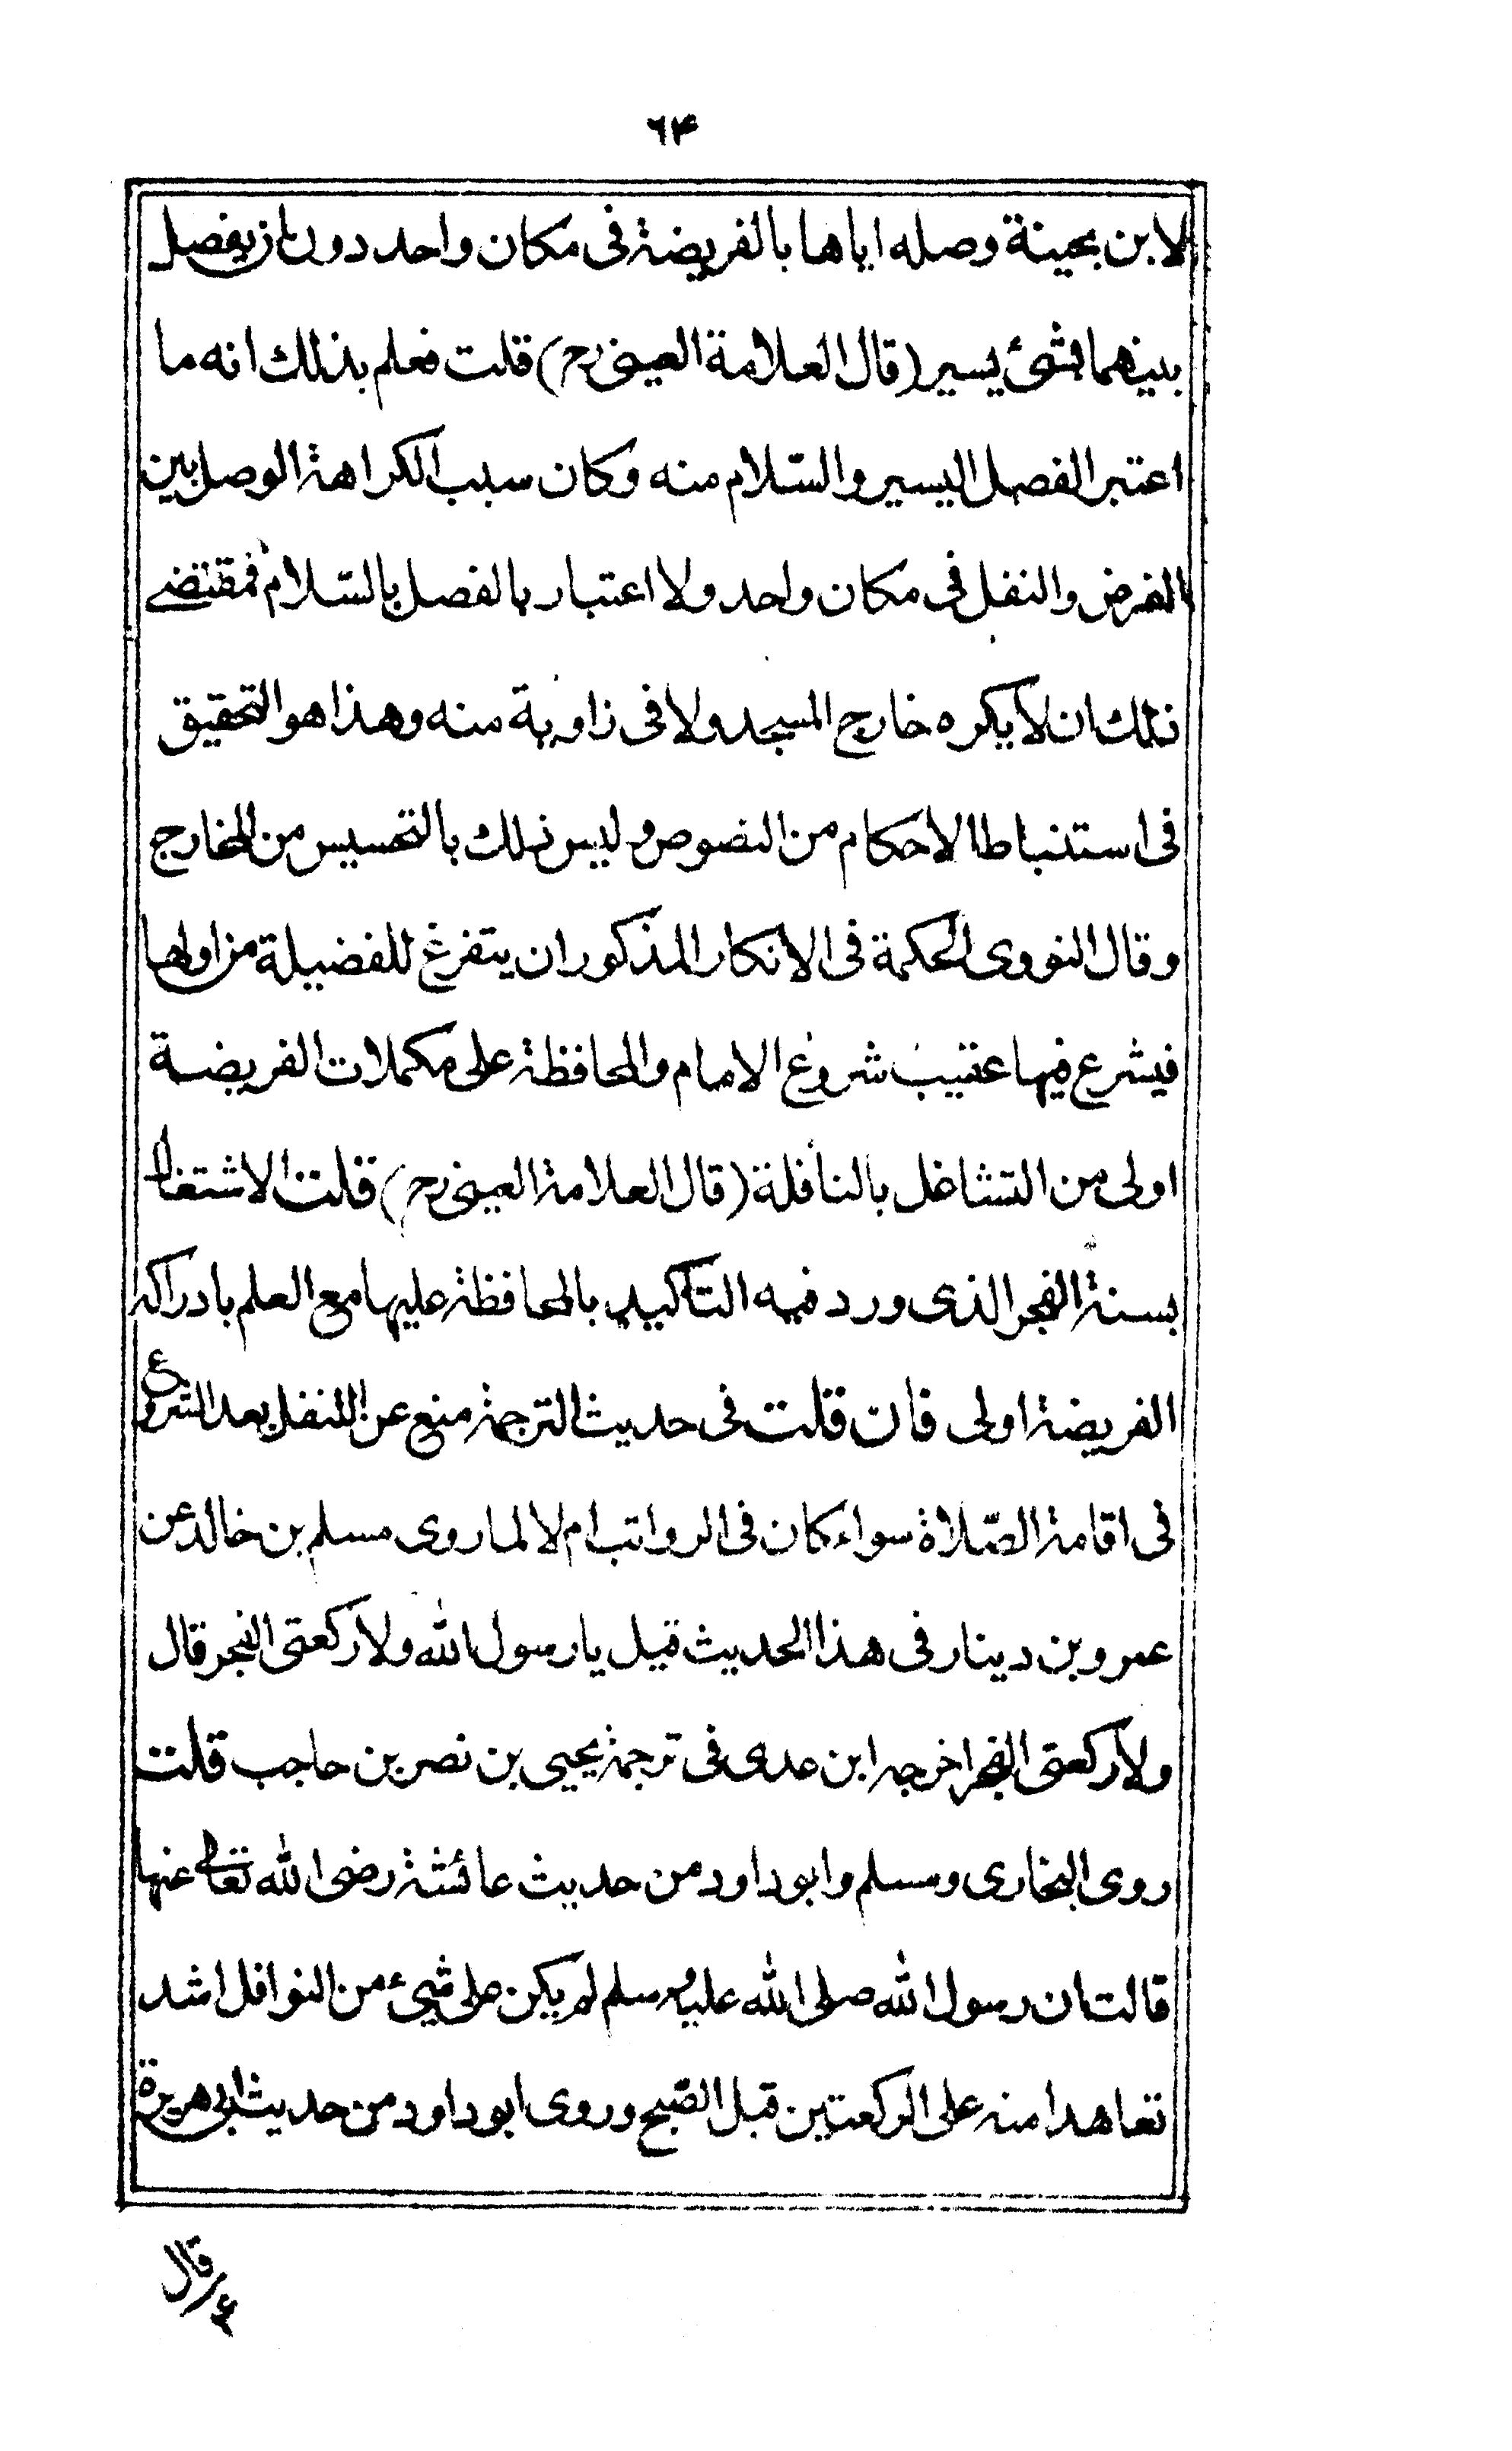 ٦٤
لابن بحينة وصله اياها بالفريضة فى مكان واحد دون ان يفصل
بينهما بشئ يسير (قال العلامة العينى رح) قلت فعلم بذلك انه ما
اعتبر الفصل اليسير والسّلام منه وكان سبب الكراهة الوصل بين
الفرض والنفل فى مكان واحد ولا اعتبار بالفصل بالسّلام فمقتضے
ذلك ان لا يكره خارج المسجد ولا فى زاوية منه وهذا هو التحقيق
فى استنباط الاحكام من النصوص وليس ذلك بالتحسيس من الخارج
وقال النووى الحكمة فى الانكار المذكور ان يتفرغ للفضيلة من اولها
فيشرع فيها عقيب شروع الامام والمحافظة على مكملات الفريضة
اولى من التشاغل بالنافلة (قال العلامة العينى رح) قلت الاشتغال
بسنة الفجر الذى ورد فيه التاكيد بالمحافظة عليها مع العلم بادراكه
الفريضة اولى فان قلت فى حديث الترجمة منع عن التنفل بعد الشروع
فى اقامة الصّلاة سواء كان فى الرواتب ام لا لما روى مسلم بن خالد عن
عمرو بن دينار فى هذا الحديث قيل يا رسول الله ولا ركعتى الفجر قال
ولا ركعتى الفجر اخرجه ابن عدى فى ترجمة يحيى بن نصر بن حاجب قلت
روى البخارى ومسلم وابو داود من حديث عائشة رضى الله تعالى عنها
قالت ان رسول الله صلى الله عليه وسلم لم يكن على شيىء من النوافل اشد
تعاهدا منه على الركعتين قبل الصّبح وروى ابو داود من حديث ابى هريرة
قال